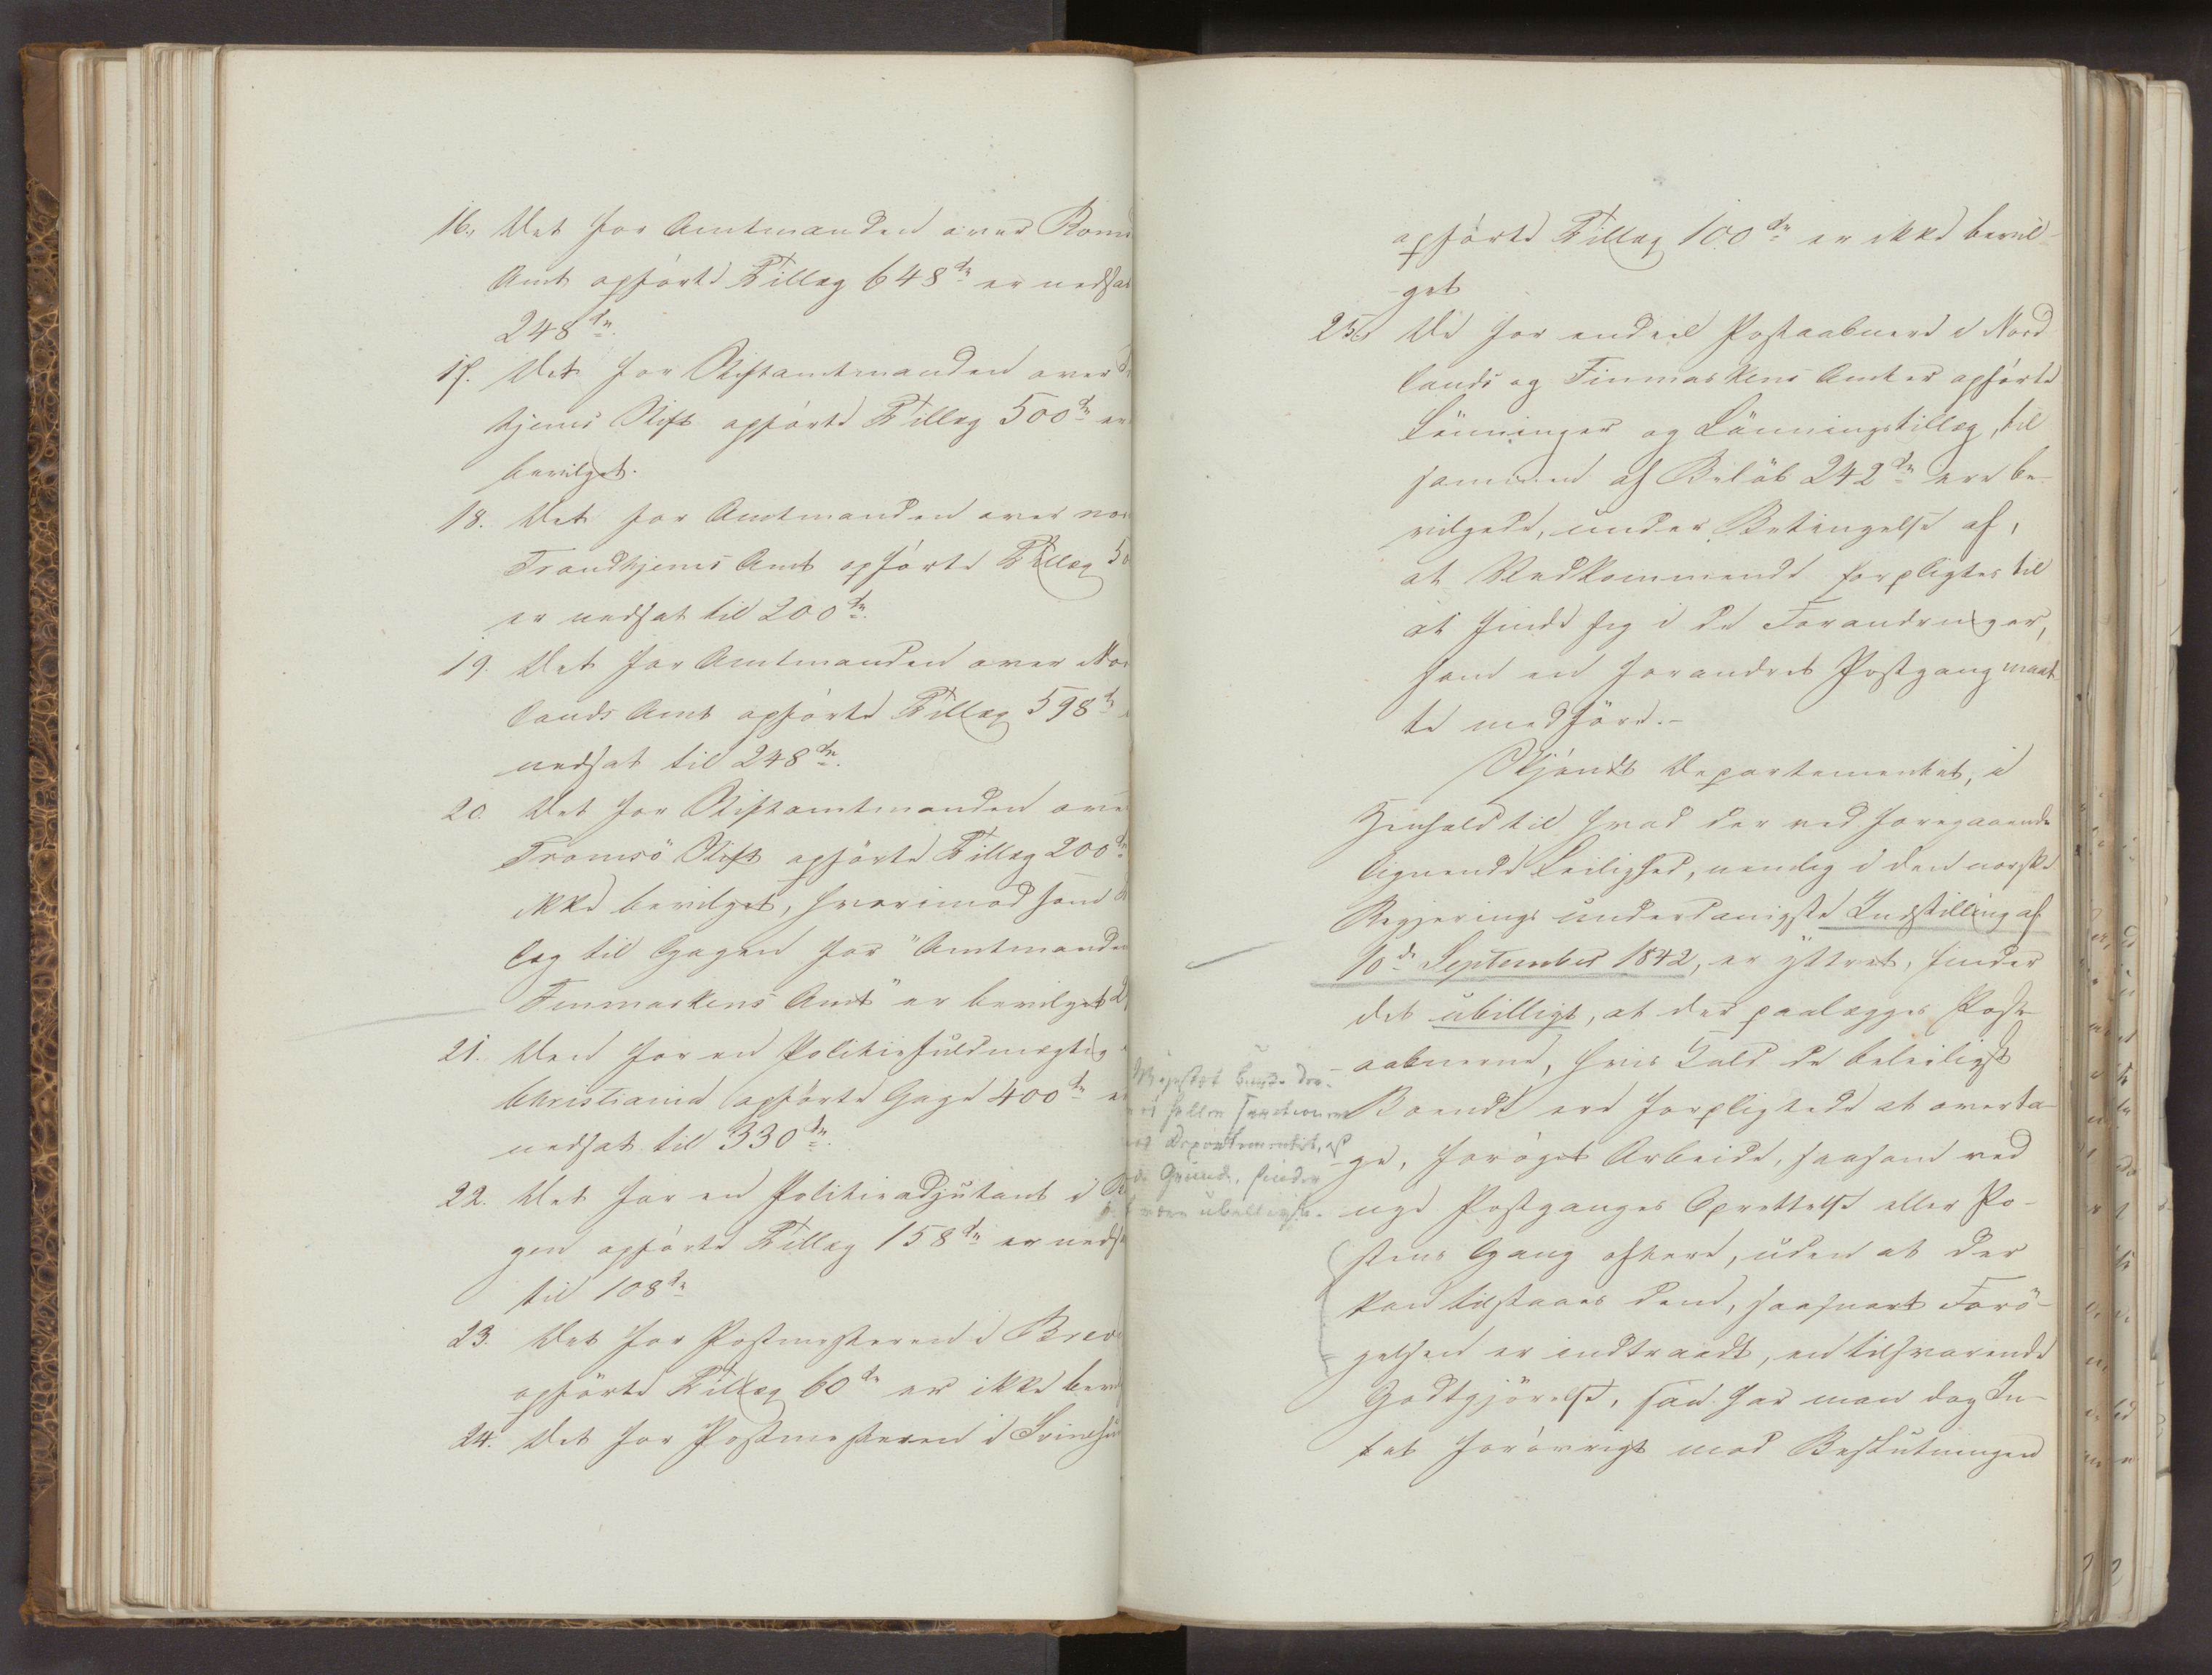 16. Det for Amtmanden over Roms
Amt opførte Tillæg 648 dr er nedsat
248 dr.
17. Det for Stiftamtmanden over
hjems Stift opførte Tillæg 500 dr er
bevilget.
18. Det for Amtmanden over nor
Trondhjems Amt opførte Tillæg 50
er nedsat til 200 dr.
19. Det for Amtmanden over Nor
lands Amt opførte Tillæg 598 dr
nedsat til 248 dr.
20. Det for Stiftamtmanden over
Tromsö Stift opförte Tillæg 200 dr
ikke bevilget, hvorimod som
læg til Gagen for "Amtmanden
Finmarkens Amt" er bevilget
21. Den for en Politiefuldmægtig
Christiania opförte Gage 400 dr er
nedsat til 330 dr.
22. Det for en Politieadjutant i
gen opførte Tillæg 158 dr er neds
til 108 dr
23. Det for Postmesteren i Brev
opførte Tillæg 60 dr er ikke bev
24. Det for Postmesteren i
opførte Tillæg 100 dr er ikke bevil-
get
25. De for endeel Postaabnere i Nord
lands og Finmarkens Amter opførte
Lönninger og Lönningstillæg, til
sammen af Beløb 242 dr ere be-
vilgede, under Betingelse af,
at Vedkommende forpligtes til
at finde sig i de Forandringer,
som en forandret Postgang maat-
te medføre.-
Skjøndt Departementet, i
Henhold til hvad der ved foregaaende
lignende Leilighed, nemlig i den norske
Regjerings underdanigste Indstilling af
10de September 1842, er yttret, finder
det ubilligt, at der paalægges Post-
aabnerne, hvis Kald de beleiligst
Boende ere forpligtede at overta-
ge, forøget Arbeide, saasom ved
nye Postganges Oprettelse eller Po-
stens Gang oftere, uden at der
kan tilstaaes dem, saasnart Forö-
gelsen er indtraadt, en tilsvarende
Godtgjörelse, saa har man dog In-
tet forøvrigt mod Beslutningen
Departementet, af
Grunde, finder
ubilligst.